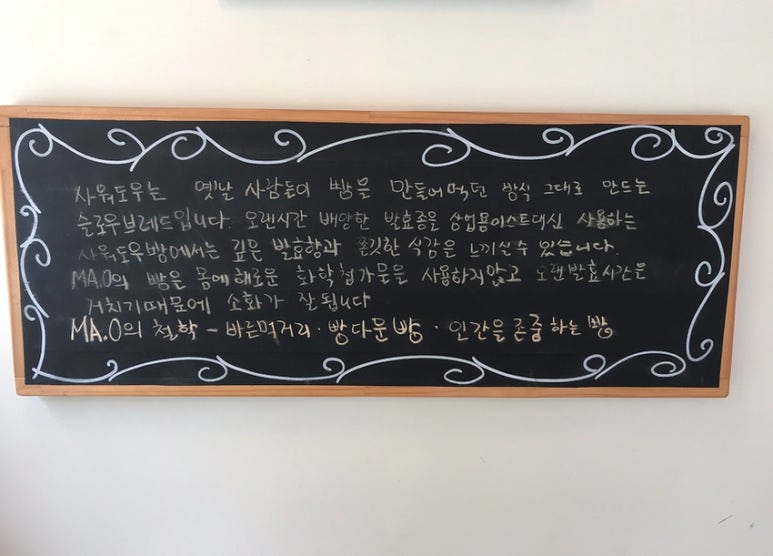 사워도우는 옛날 사람들이 빵을 만들어먹던 방식 그대로 만드는
슬로우브레드입니다. 오랜시간 배양한 발효종을 상업용이스트대신 사용하는
사워도우빵에서는 깊은 발효향과 쫄깃한 식감을 느끼실수 있습니다.
MA.O의 빵은 몸에해로운 화학첨가물을 사용하지않고 오랜발효시간을
거치기때문에 소화가 잘됩니다
MA.O의 철학 - 바른먹거리 · 빵다운빵 · 인간을존중하는 빵